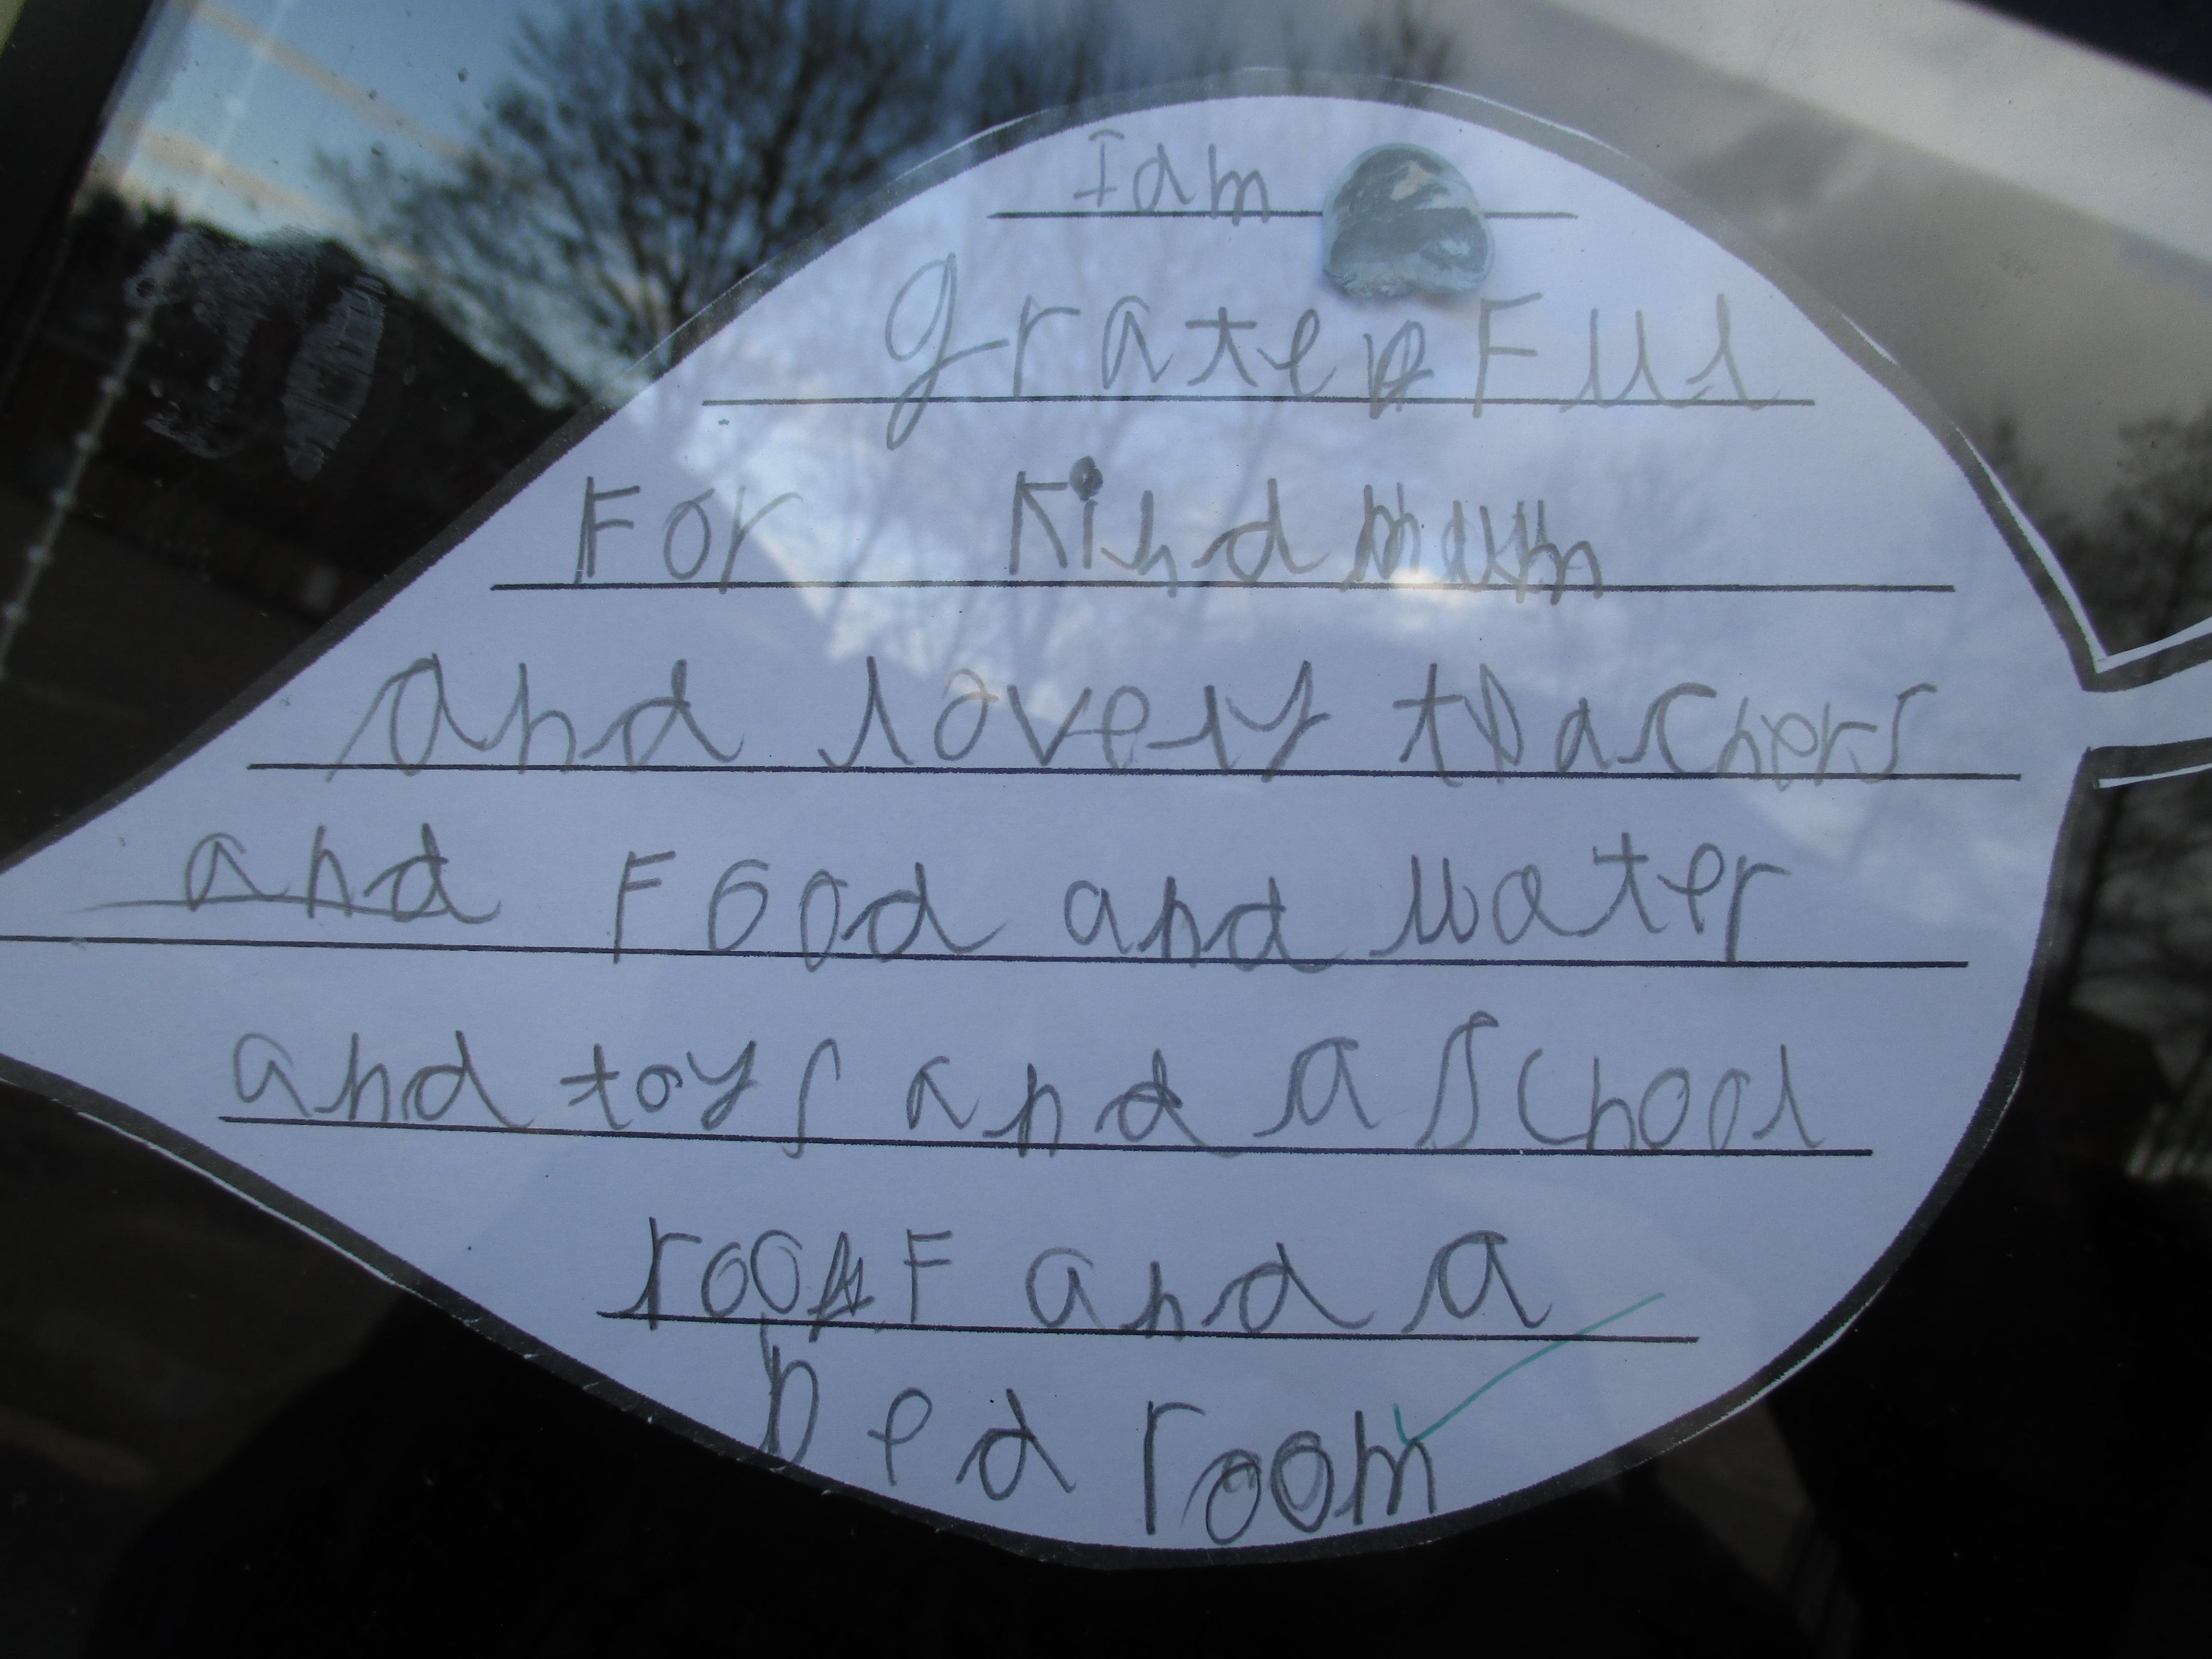 I am
grateFul
For Kind mum
and lovely teachers
and Food and water
and toys and a school
rooF and a
bed room